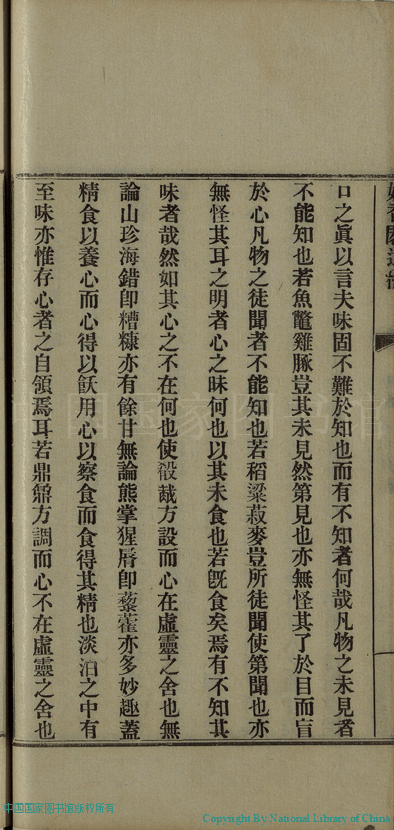 口之眞以言夫味固不難於知也而有不知者何哉凡物之未見者
不能知也若魚鼈雞豚豈其未見然第見也亦無怪其了於目而盲
於心凡物之徒聞者不能知也若稻粱菽麥豈所徒聞使第聞也亦
無怪其耳之明者心之昧何也以其未食也若旣食矣焉有不知其
味者哉然如其心之不在何也使殽胾方設而心在虛靈之舍也無
論山珍海錯卽糟糠亦有餘甘無論熊掌猩脣卽藜藿亦多妙趣蓋
精食以養心而心得以飫用心以察食而食得其精也淡泊之中有
至味亦惟存心者之自領焉耳若鼎鼐方調而心不在虛靈之舍也
中国国家图书馆版权所有
Copyright By National Library of China